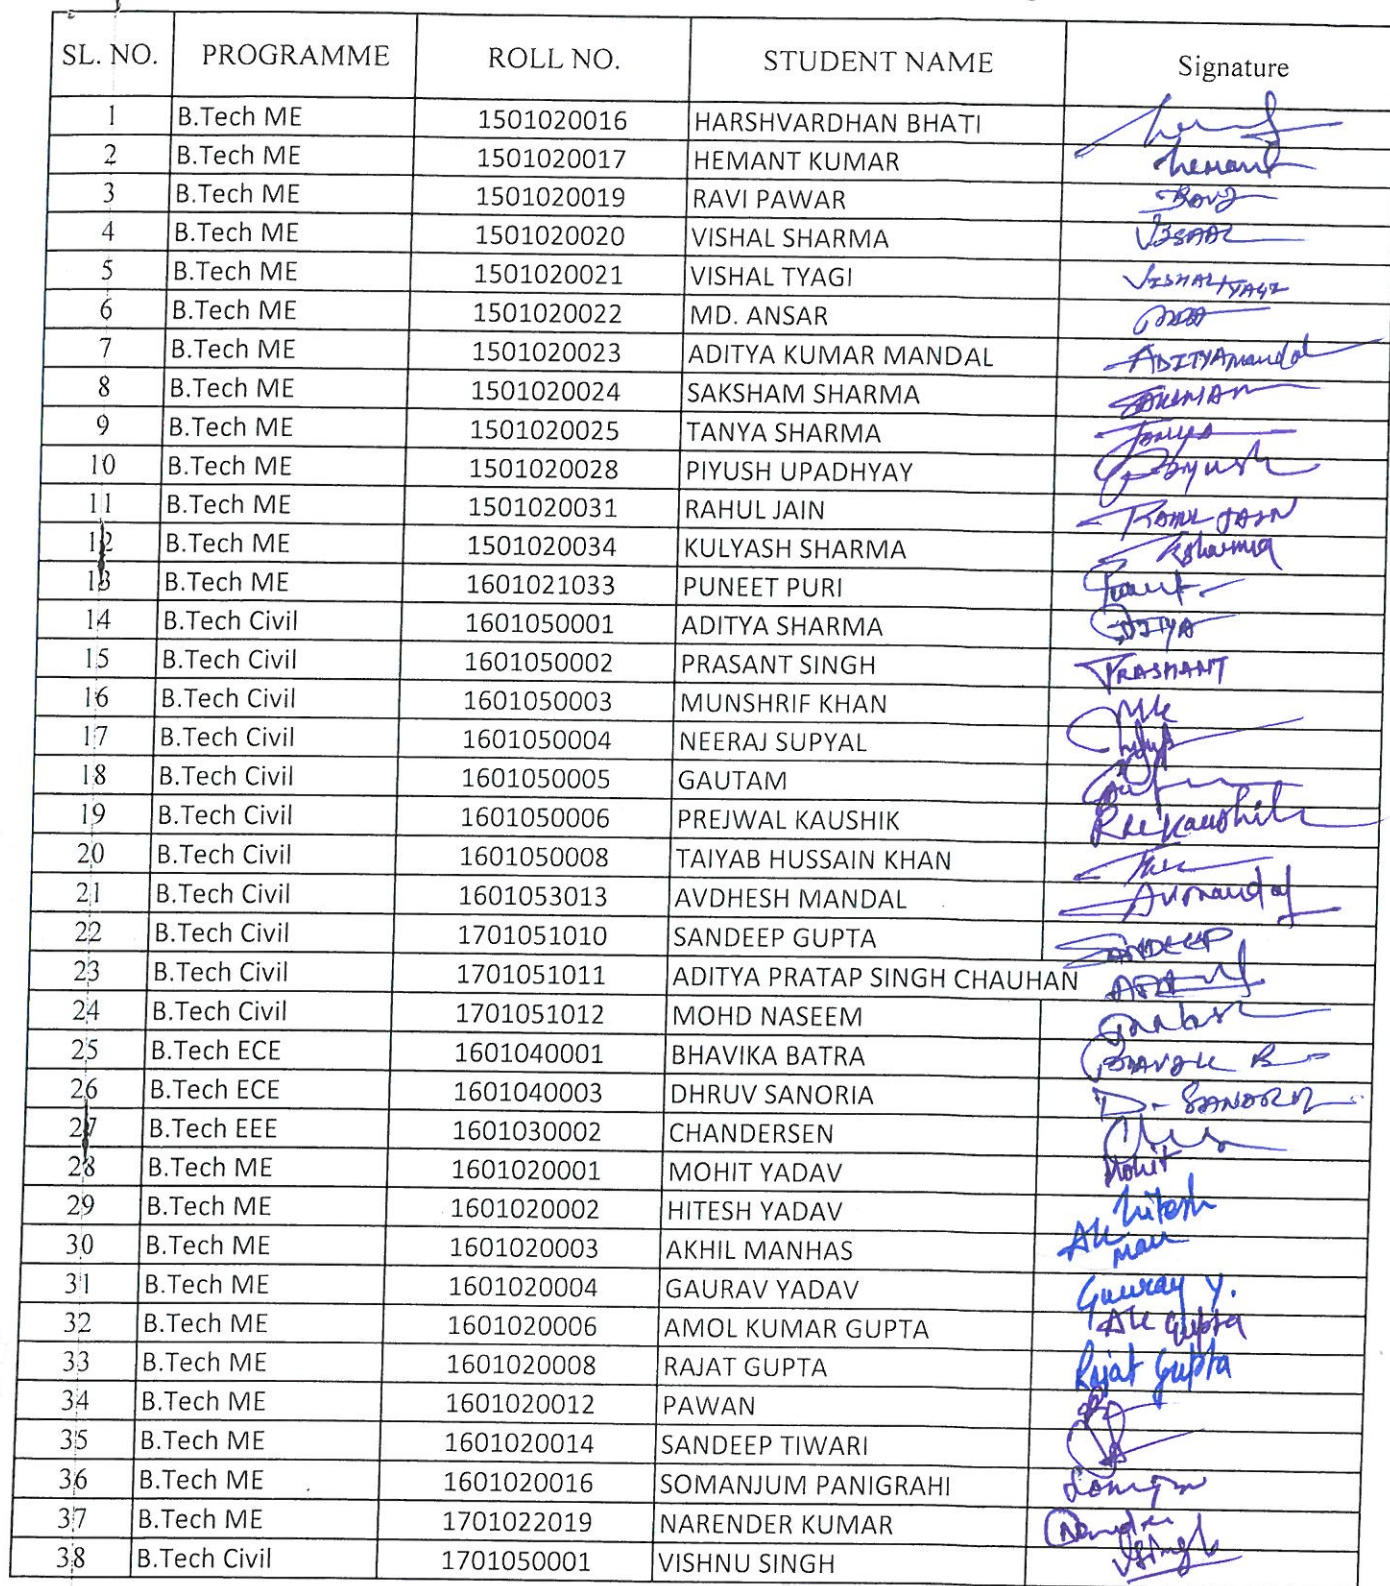 SL. NO. PROGRAMME ROLL NO. STUDENT NAME Signature
1 B.Tech ME 1501020016 HARSHVARDHAN BHATI
2 B.Tech ME 1501020017 HEMANT KUMAR hemant
3 B.Tech ME 1501020019 RAVI PAWAR
4 B.Tech ME 1501020020 VISHAL SHARMA
5 B.Tech ME 1501020021 VISHAL TYAGI VISHALTYAGI
6 B.Tech ME 1501020022 MD. ANSAR
7 B.Tech ME 1501020023 ADITYA KUMAR MANDAL ADITYAMandal
8 B.Tech ME 1501020024 SAKSHAM SHARMA
9 B.Tech ME 1501020025 TANYA SHARMA Tanya
10 B.Tech ME 1501020028 PIYUSH UPADHYAY Piyush
11 B.Tech ME 1501020031 RAHUL JAIN RAHUL JAIN
12 B.Tech ME 1501020034 KULYASH SHARMA KSharma
13 B.Tech ME 1601021033 PUNEET PURI
14 B.Tech Civil 1601050001 ADITYA SHARMA ADITYA
15 B.Tech Civil 1601050002 PRASANT SINGH PRASHANT
16 B.Tech Civil 1601050003 MUNSHRIF KHAN MK
17 B.Tech Civil 1601050004 NEERAJ SUPYAL
18 B.Tech Civil 1601050005 GAUTAM
19 B.Tech Civil 1601050006 PREJWAL KAUSHIK
20 B.Tech Civil 1601050008 TAIYAB HUSSAIN KHAN
21 B.Tech Civil 1601053013 AVDHESH MANDAL Avmandal
22 B.Tech Civil 1701051010 SANDEEP GUPTA SANDEEP
23 B.Tech Civil 1701051011 ADITYA PRATAP SINGH CHAUHAN
24 B.Tech Civil 1701051012 MOHD NASEEM
25 B.Tech ECE 1601040001 BHAVIKA BATRA
26 B.Tech ECE 1601040003 DHRUV SANORIA
27 B.Tech EEE 1601030002 CHANDERSEN
28 B.Tech ME 1601020001 MOHIT YADAV Mohit
29 B.Tech ME 1601020002 HITESH YADAV hitesh
30 B.Tech ME 1601020003 AKHIL MANHAS
31 B.Tech ME 1601020004 GAURAV YADAV Gaurav Y.
32 B.Tech ME 1601020006 AMOL KUMAR GUPTA AK Gupta
33 B.Tech ME 1601020008 RAJAT GUPTA Rajat Gupta
34 B.Tech ME 1601020012 PAWAN
35 B.Tech ME 1601020014 SANDEEP TIWARI
36 B.Tech ME 1601020016 SOMANJUM PANIGRAHI
37 B.Tech ME 1701022019 NARENDER KUMAR
38 B.Tech Civil 1701050001 VISHNU SINGH VSingh